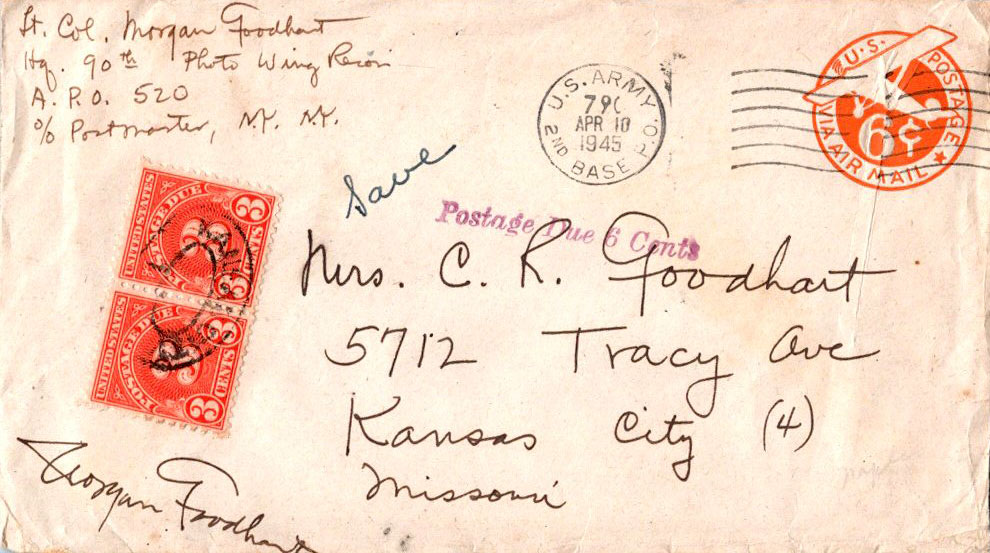 Lt. Col. Morgan Goodhart
Hq. 90th Photo Wing Recon
A. P. O. 520
c/o Postmaster, N.Y. N.Y.
U.S. ARMY
APR 10
1945
2ND BASE P.O.
U.S. POSTAGE
VIA AIR MAIL
6¢
Save
Postage Due 6 Cents
UNITED STATES
POSTAGE DUE
3
CENTS
3
UNITED STATES
POSTAGE DUE
3
CENTS
3
Mrs. C. R. Goodhart
5712 Tracy Ave
Kansas City (4)
Missouri
Morgan Goodhart